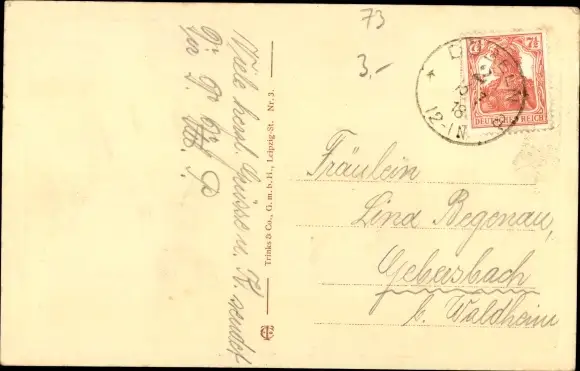 73
3.-
Viele herzl. Grüsse u. K. sendet
Trinks & Co., G. m. b. H., Leipzig-St. Nr. 3.
7½ 7½
DEUTSCHES REICH
12-1N
Fräulein
Lina Begenau,
Gebersbach
b. Waldheim